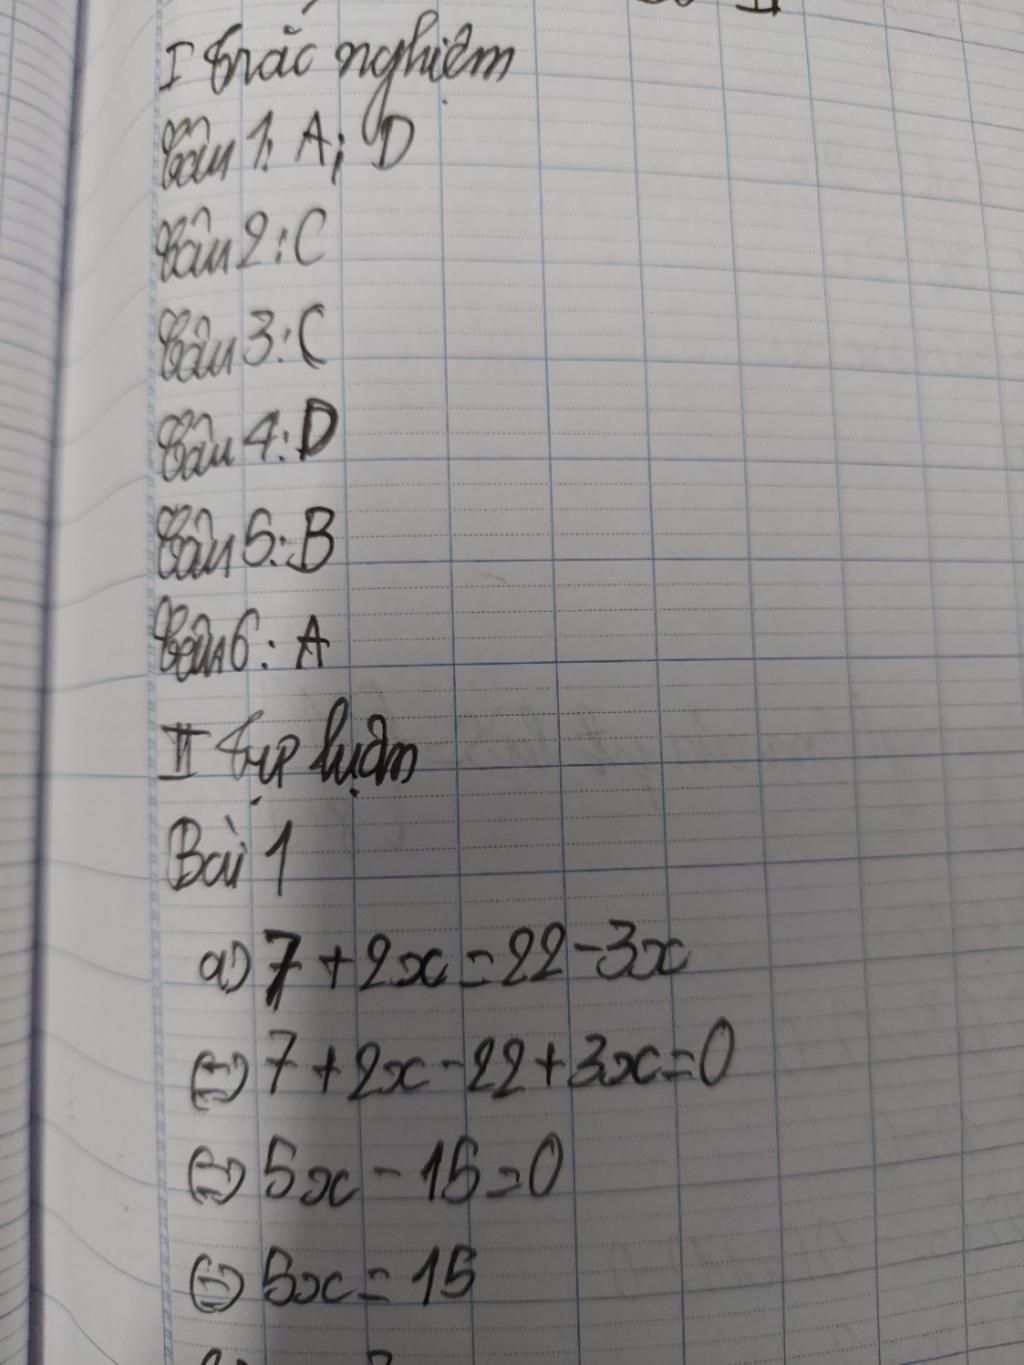 I Trắc nghiệm
Câu 1: A; D
Câu 2: C
Câu 3: C
Câu 4: D
Câu 5: B
Câu 6: A
II Tự luận
Bài 1
a) 7 + 2x = 22 - 3x
⇔ 7 + 2x - 22 + 3x = 0
⇔ 5x - 15 = 0
⇔ 5x = 15